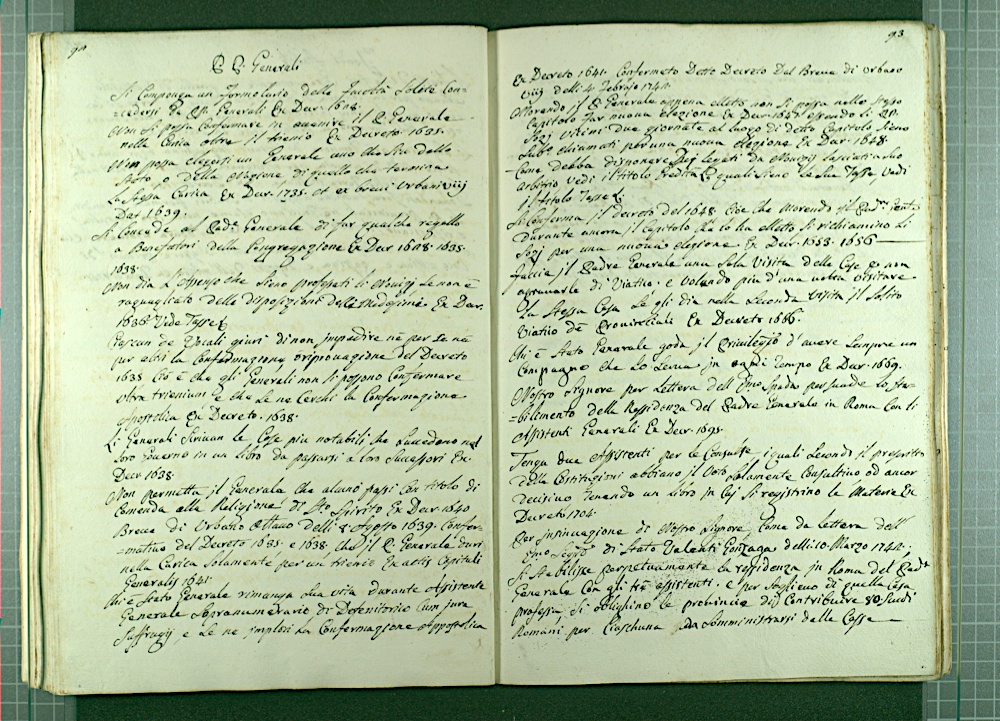 P. P. Generali
Si Componga un Formolario delle facoltà Solite Con-
cedersi da PP. Generali Ex Decr. 1608.
Non si possa Confirmare in avenire il P. Generale
nella Carica oltre il trienio Ex Decreto 1635.
Non possa elegersi un Generale uno che sia dello
Stato, o della Nazione di quello che termina
La Stessa Carica Ex Decr. 1735. et ex brevi Urbani viij
Dat. 1639.
Si Concede al Padre Generale di far qualche regallo
a Benefatori della Congregazione Ex Decr 1608. 1635.
1638.
Non dia L'assenso che sieno professati li Novizj se non è
raguagliato delle disposizioni delle Medesime Ex Decr.
1636. Vide Tasse
Ciascun de Vocali giuri di non impedire nè per se nè
per altri la Confermazione o ripovazione del Decreto
1635 Ciò è che gli Generali non si possono Confermare
ultra trienium e che se ne Cerchi la Confermazione
Apostolica Ex Decreto. 1638.
Li Generali Scrivan le Cose più notabili che Succedono nel
loro governo in un libro da passarsi a loro Successori Ex
Decr 1638.
Non permetta il Generale che alcuno passi Con titolo di
Comenda alla Religione di Sto Spirito Ex Decr. 1640
Breve di Urbano Ottavo delli Agosto 1639. Confer-
=mativo del Decreto 1635. e 1638. che il P. Generale duri
nella Carica Solamente per un trienio Ex actis Capitali
Generalis 1641.
Chi è Stato Generale rimanga Sua vita durante Assistente
Generale Sopranumerario di Definitorio Cum jure
Suffragij e Se ne implori La Confermazione Appostolica
93
Ex Decreto 1641. Confermato Detto Decreto Dal Breve di Urbano
viij delli 4 Febrajo 1742.
Morendo il P. Generale appena eletto non si possa nello stesso
Capitolo far nuova elezione Ex Decr. 1645 essendo li PP.
Sozj vicini due giornate al luogo di detto Capitolo Sieno
Subo. chiamati per una nuova elezione Ex Decr. 1648.
Come debba disponere dej legati da Novizij lasciati a Suo
arbitrio vedi il titolo Eredità E quali sieno le Sue Tasse, vedi
il titolo Tasse
Si Conferma il decreto del 1648. Cioè che Morendo il Padre
durante ancora il Capitolo che lo ha eletto si richiamino li
Sozj per una nuova elezione Ex Decr. 1653. 1656
Faccia il Padre Generale una Sola Visita delle Case e non
agravarle di Viatico. e Volendo più d'una volta visitare
La Stessa Casa Se gli dia nella Seconda visita il Solito
Viatico de Provinciali Ex Decreto 1666.
Chi è Stato Generale goda il Privileggio d'avere Sempre un
Compagno che Lo Serva in ogni tempo Ex Decr. 1669.
Nostro Signore per Lettera dell'Emo Spada persuade lo sta-
=bilimento della Residenza del Padre Generale in Roma Con li
Assistenti Generali Ex Decr. 1695.
Tenga due Assistenti per le Consulte, iquali Secondo il prescritto
delle Costituzioni abbiano il Voto Solamente Consultivo ed ancor
decisivo tenendo un libro in Cui Si registrino le Materie Ex
Decreto 1704.
Per Insinuazione di Nostro Signore Come da lettera dell'
Emo Segro di Stato Valenti Gonzaga delli 10. Marzo 1742.
Si Stabilisce perpetuamente la residenza in Roma del Padre
Generale Con gli trè assistenti. e per Soglievo di quella Casa
professa Si oblighino le provincie di Contribuire 80 Scudi
Romani per Ciaschuna da Somministrarsi dalle Casse